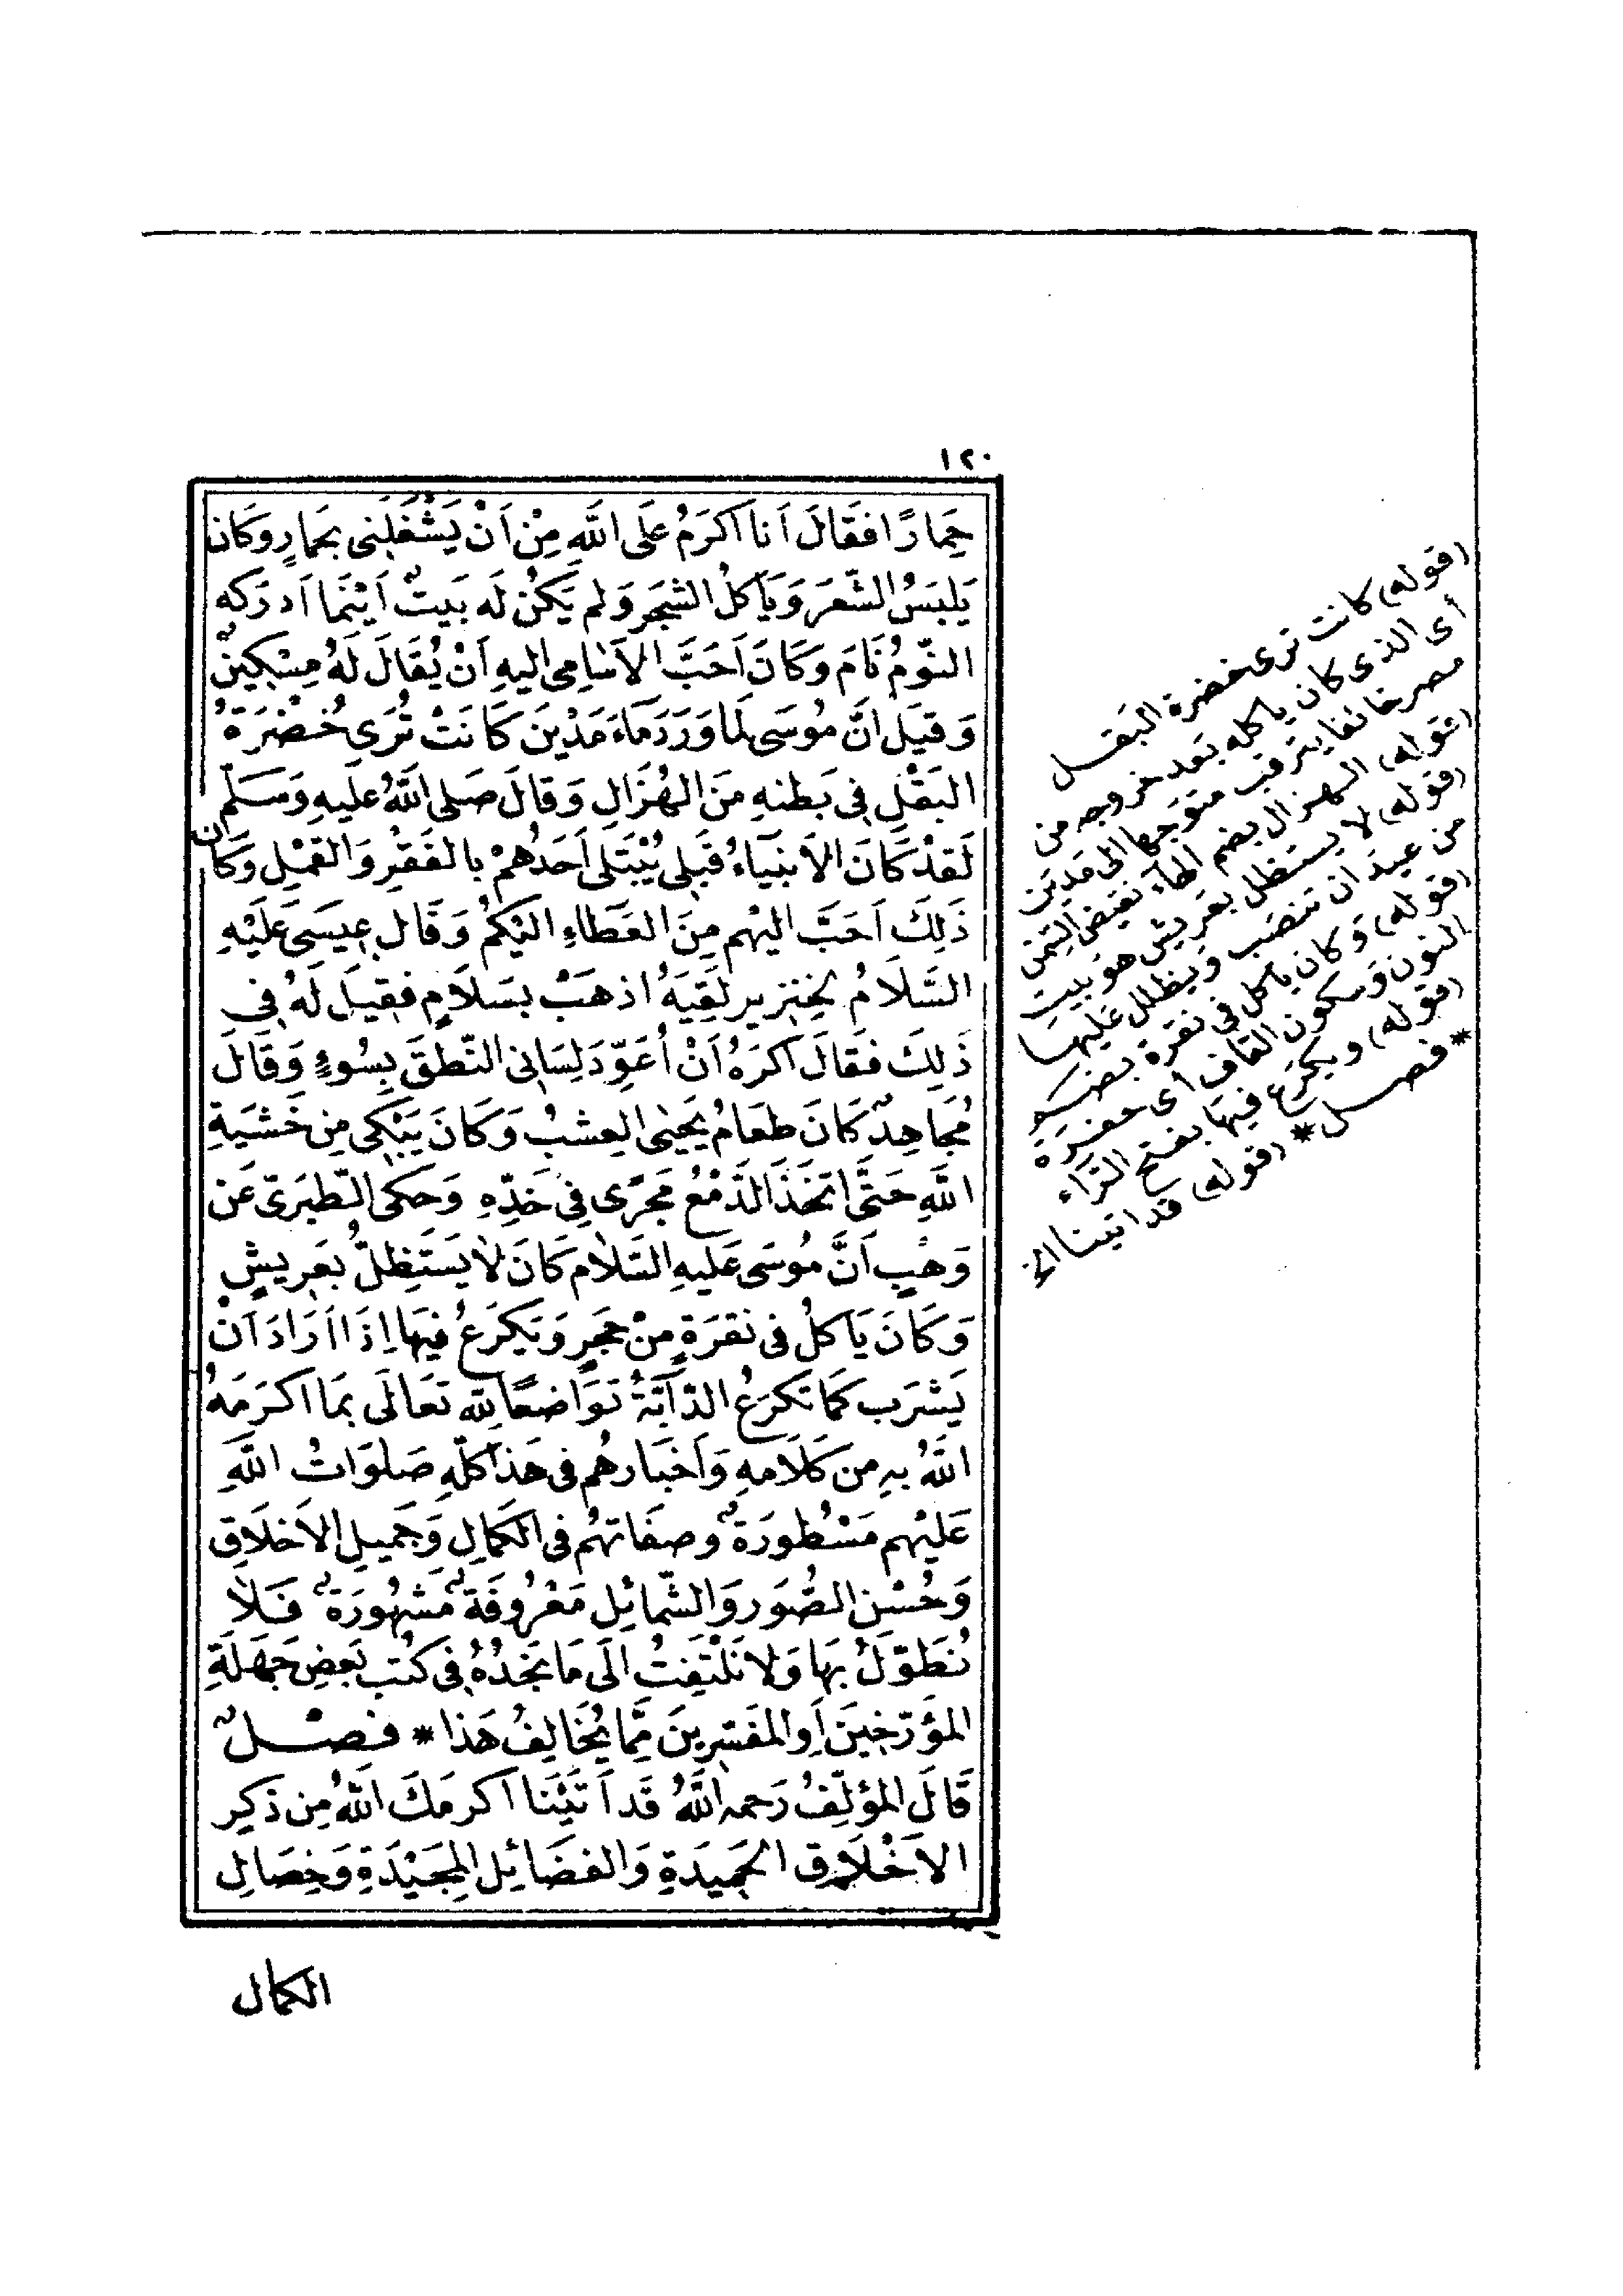 ١٢٠
حِمَارًا فَقَالَ اَنَا اَكْرَمُ عَلَى اللَّهِ مِنْ اَنْ يَشْغَلَنِى بِحِمَارٍ وَكَانَ
يَلْبَسُ الشَّعَرَ وَيَأكُلُ الشَّجَرَ وَلم يَكُنْ لَه بَيتٌ اَيْنَمَا اَدرَكَه
النَّوْمُ نَامَ وَكَانَ اَحَبَّ الاَسَامِى اليهِ اَنْ يُقَالَ لَهُ مِسْكِينٌ
وَقيَل اِنَّ مُوسَى لَمَا وَرَدَ مَاءَ مَدْيَنَ كَانَتْ تُرَى خُضْرَةُ
البَقْلِ فِى بَطنهِ مِنَ الهُزَالِ وَقالَ صَلى اللَّهُ عَليهِ وَسَلّم
لَقَدْ كَانَ الاَنبِيَاءُ قَبلِى يُبْتَلَى اَحَدُهُمْ بالفَقْرِ وَالقَمْلِ وَكَانَ
ذَلِكَ اَحَبَّ اليْهم مِنَ العَطَاءِ اليْكُم وَقَال عِيسَى عَلَيْهِ
السَّلاَمُ لِخِنزير لَقِيَهُ اذهَبْ بسَلاَمٍ فقِيلَ لَهُ فِى
ذَلِكَ فقَالَ اَكرَهُ اَنْ اُعَوِّدَ لِسَانى النّطقَ بِسُوءٍ وَقَالَ
مُجَاهِدٌ كَانَ طَعَامُ يَحْيَى العِشبُ وَكَانَ يَبْكى مِن خَشْيَةِ
اللَّهِ حَتَّى اتَّخَذَ الدَّمْعُ مَجرًى فِى خَدِّهِ وَحَكى الطَبَرِىّ عَن
وَهْبٍ اَنَّ مُوسَى عَليهِ السَّلاَم كَانَ لاَ يَستَظِلُّ بعَرِيشٍ
وَكَانَ يَأكلُ فى نقرَةٍ مِنْ حَجَرٍ وَيَكرَعُ فِيهَا اِذَا اَرَادَ اَنْ
يَشرَب كمَا تكرَعُ الدَّابَّةُ تَوَاضعًا لِلّهِ تَعَالَى بمَا اَكرَمَهُ
اللَّهُ بهِ مِن كَلاَمهِ وَاَخبَارهُم فى هَذا كلّهِ صَلوَاتُ اللَّهِ
عَليْهم مَسْطُورَةٌ وصِفَاتهُم فى الكَمَالِ وَجَمِيلِ الاَخلاَقِ
وَحُسْنِ الصُّوَر وَالشَّمائِل مَعْرُوفَةٌ مَشهُورَةٌ فَلاَ
نُطَوّلُ بهَا وَلا نَلْتَفِتُ الَى مَا نَجدُهُ فِى كتب بَعضِ جَهَلَةِ
المُؤَرّخِينَ اَو المفَسّرِينَ مِمَّا يُخَالِفُ هَذا * فصْلٌ
قَالَ المُؤلِّفُ رَحمهُ اللَّهُ قَد اَتَيْنَا اَكرمَكَ اللَّهُ مِن ذكرِ
الاَخْلاَقِ الحَمِيدَةِ وَالفضَائِلِ المجيْدَةِ وَخِصَالِ
الكمال
(قوله) كانت ترى خضرة البقل
أى الذى كان ياكله بعد خروجه من
مصر خائفا يترقب متوجها الى مدين
(قوله) الهزال بضم الهاء نقيض السمن
(قوله) لا يستظل بعريش هو بيت
من عيدان تنصب ويظلل عليها
(قوله) وكان ياكل فى نقرة بضم
النون وسكون القاف أى حفيرة
(قوله) ويكرع فيها بفتح الراء
* فصل * (قوله) قد اتينا الخ